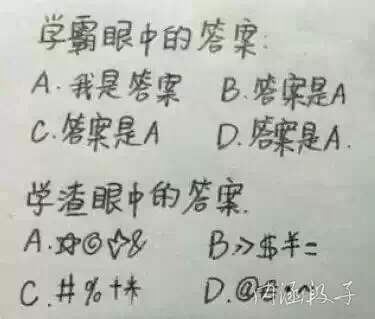 学霸眼中的答案:
A.我是答案 B.答案是A
C.答案是A D.答案是A.
学渣眼中的答案.
A.☆◎☆& B>>$羊=
C.#%+* D.@
内涵段子